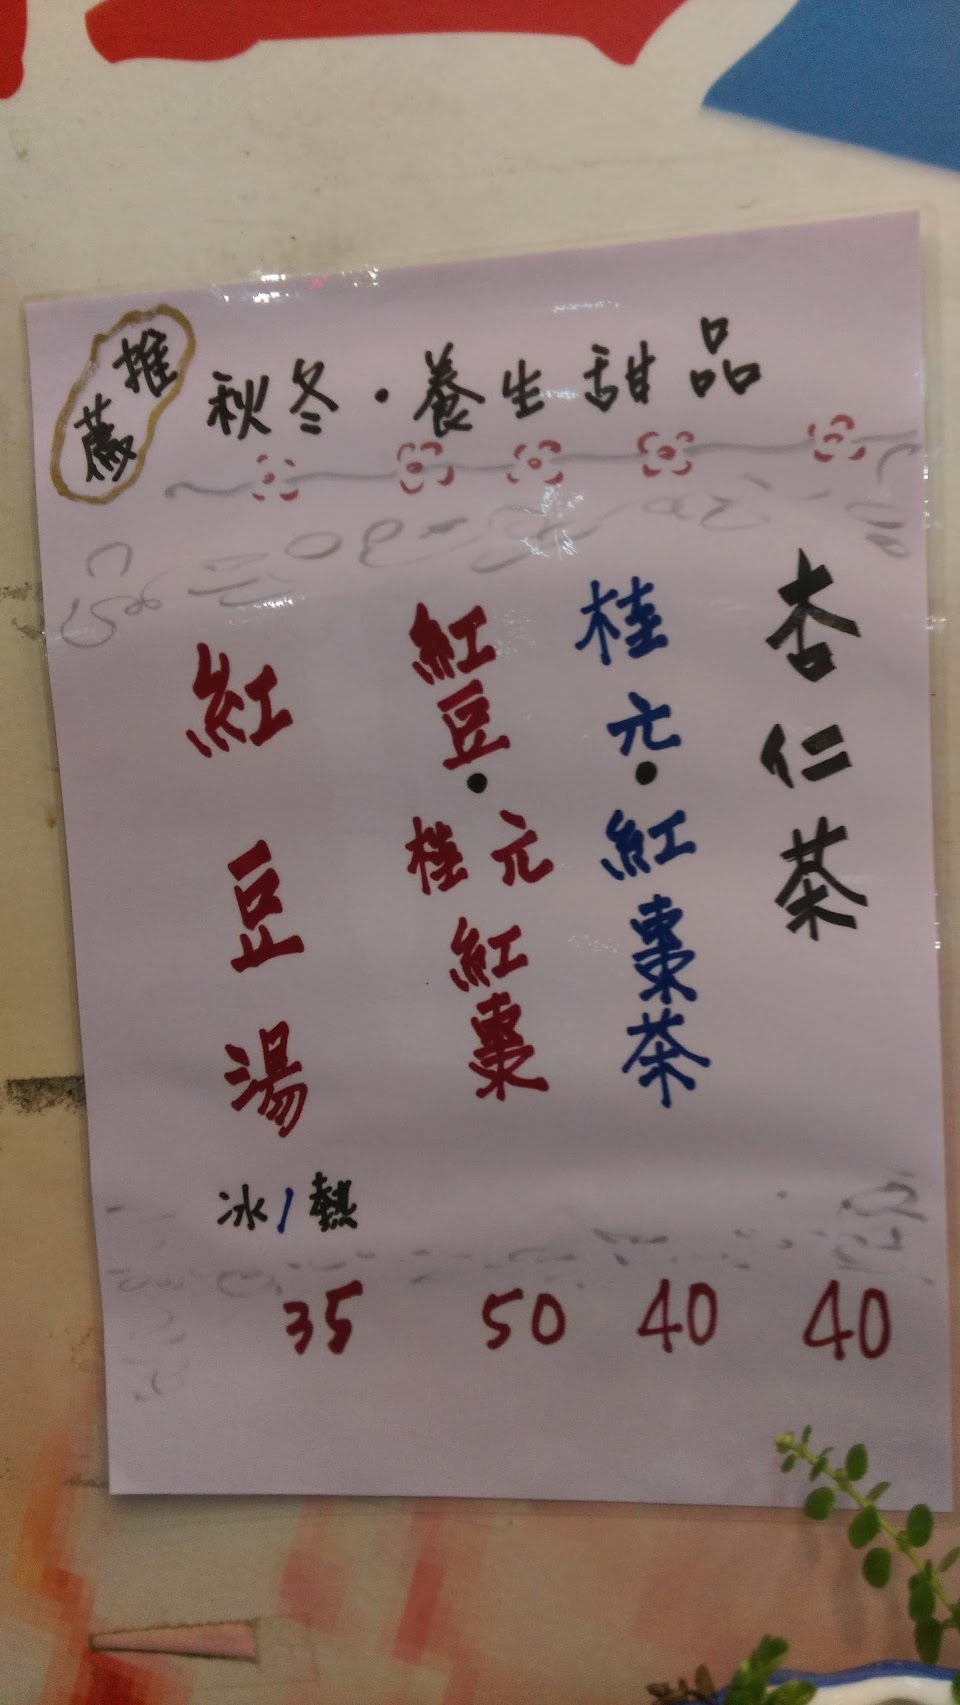 推薦
秋冬·養生甜品
杏仁茶
40
桂元·紅棗茶
40
紅豆·桂元紅棗
50
紅豆湯
冰/熱
35